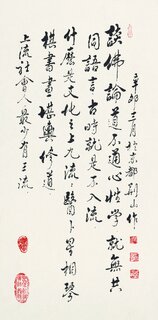 談佛論道不通心性學就無共
同語言古時就是不入流
什麽是文化之上九流一醫卜星相琴
棋書畫堪輿修道
上流社會人最少有三流
辛卯三月於京都荆山作